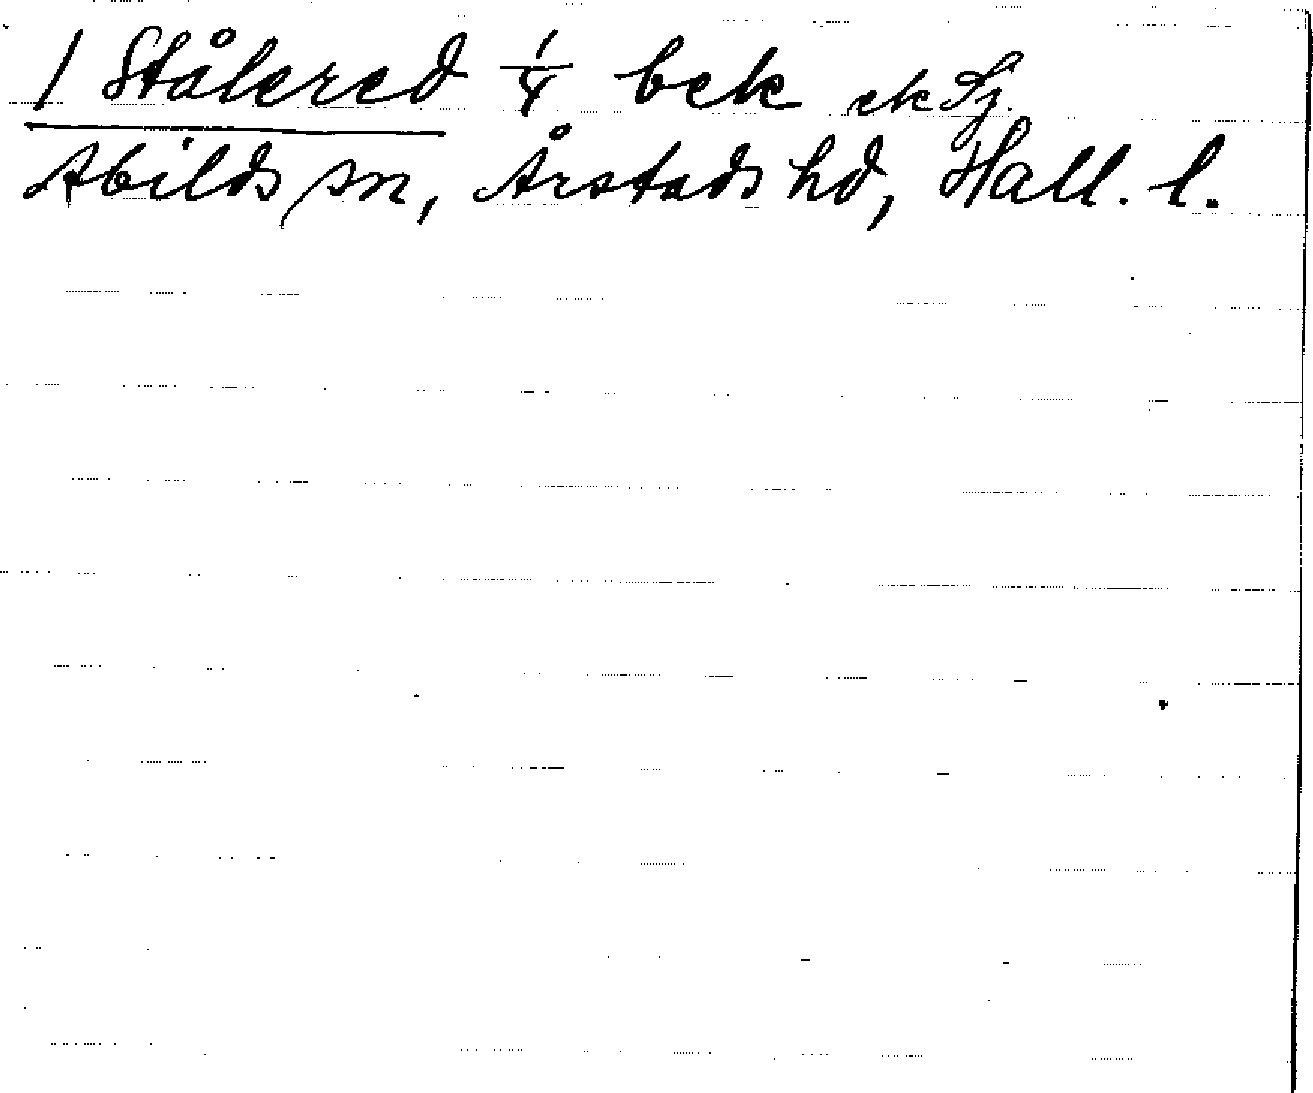 1 Stålered 1/4 bek ek Sj.
Abilds sn, Årstads hd, Hall. l.